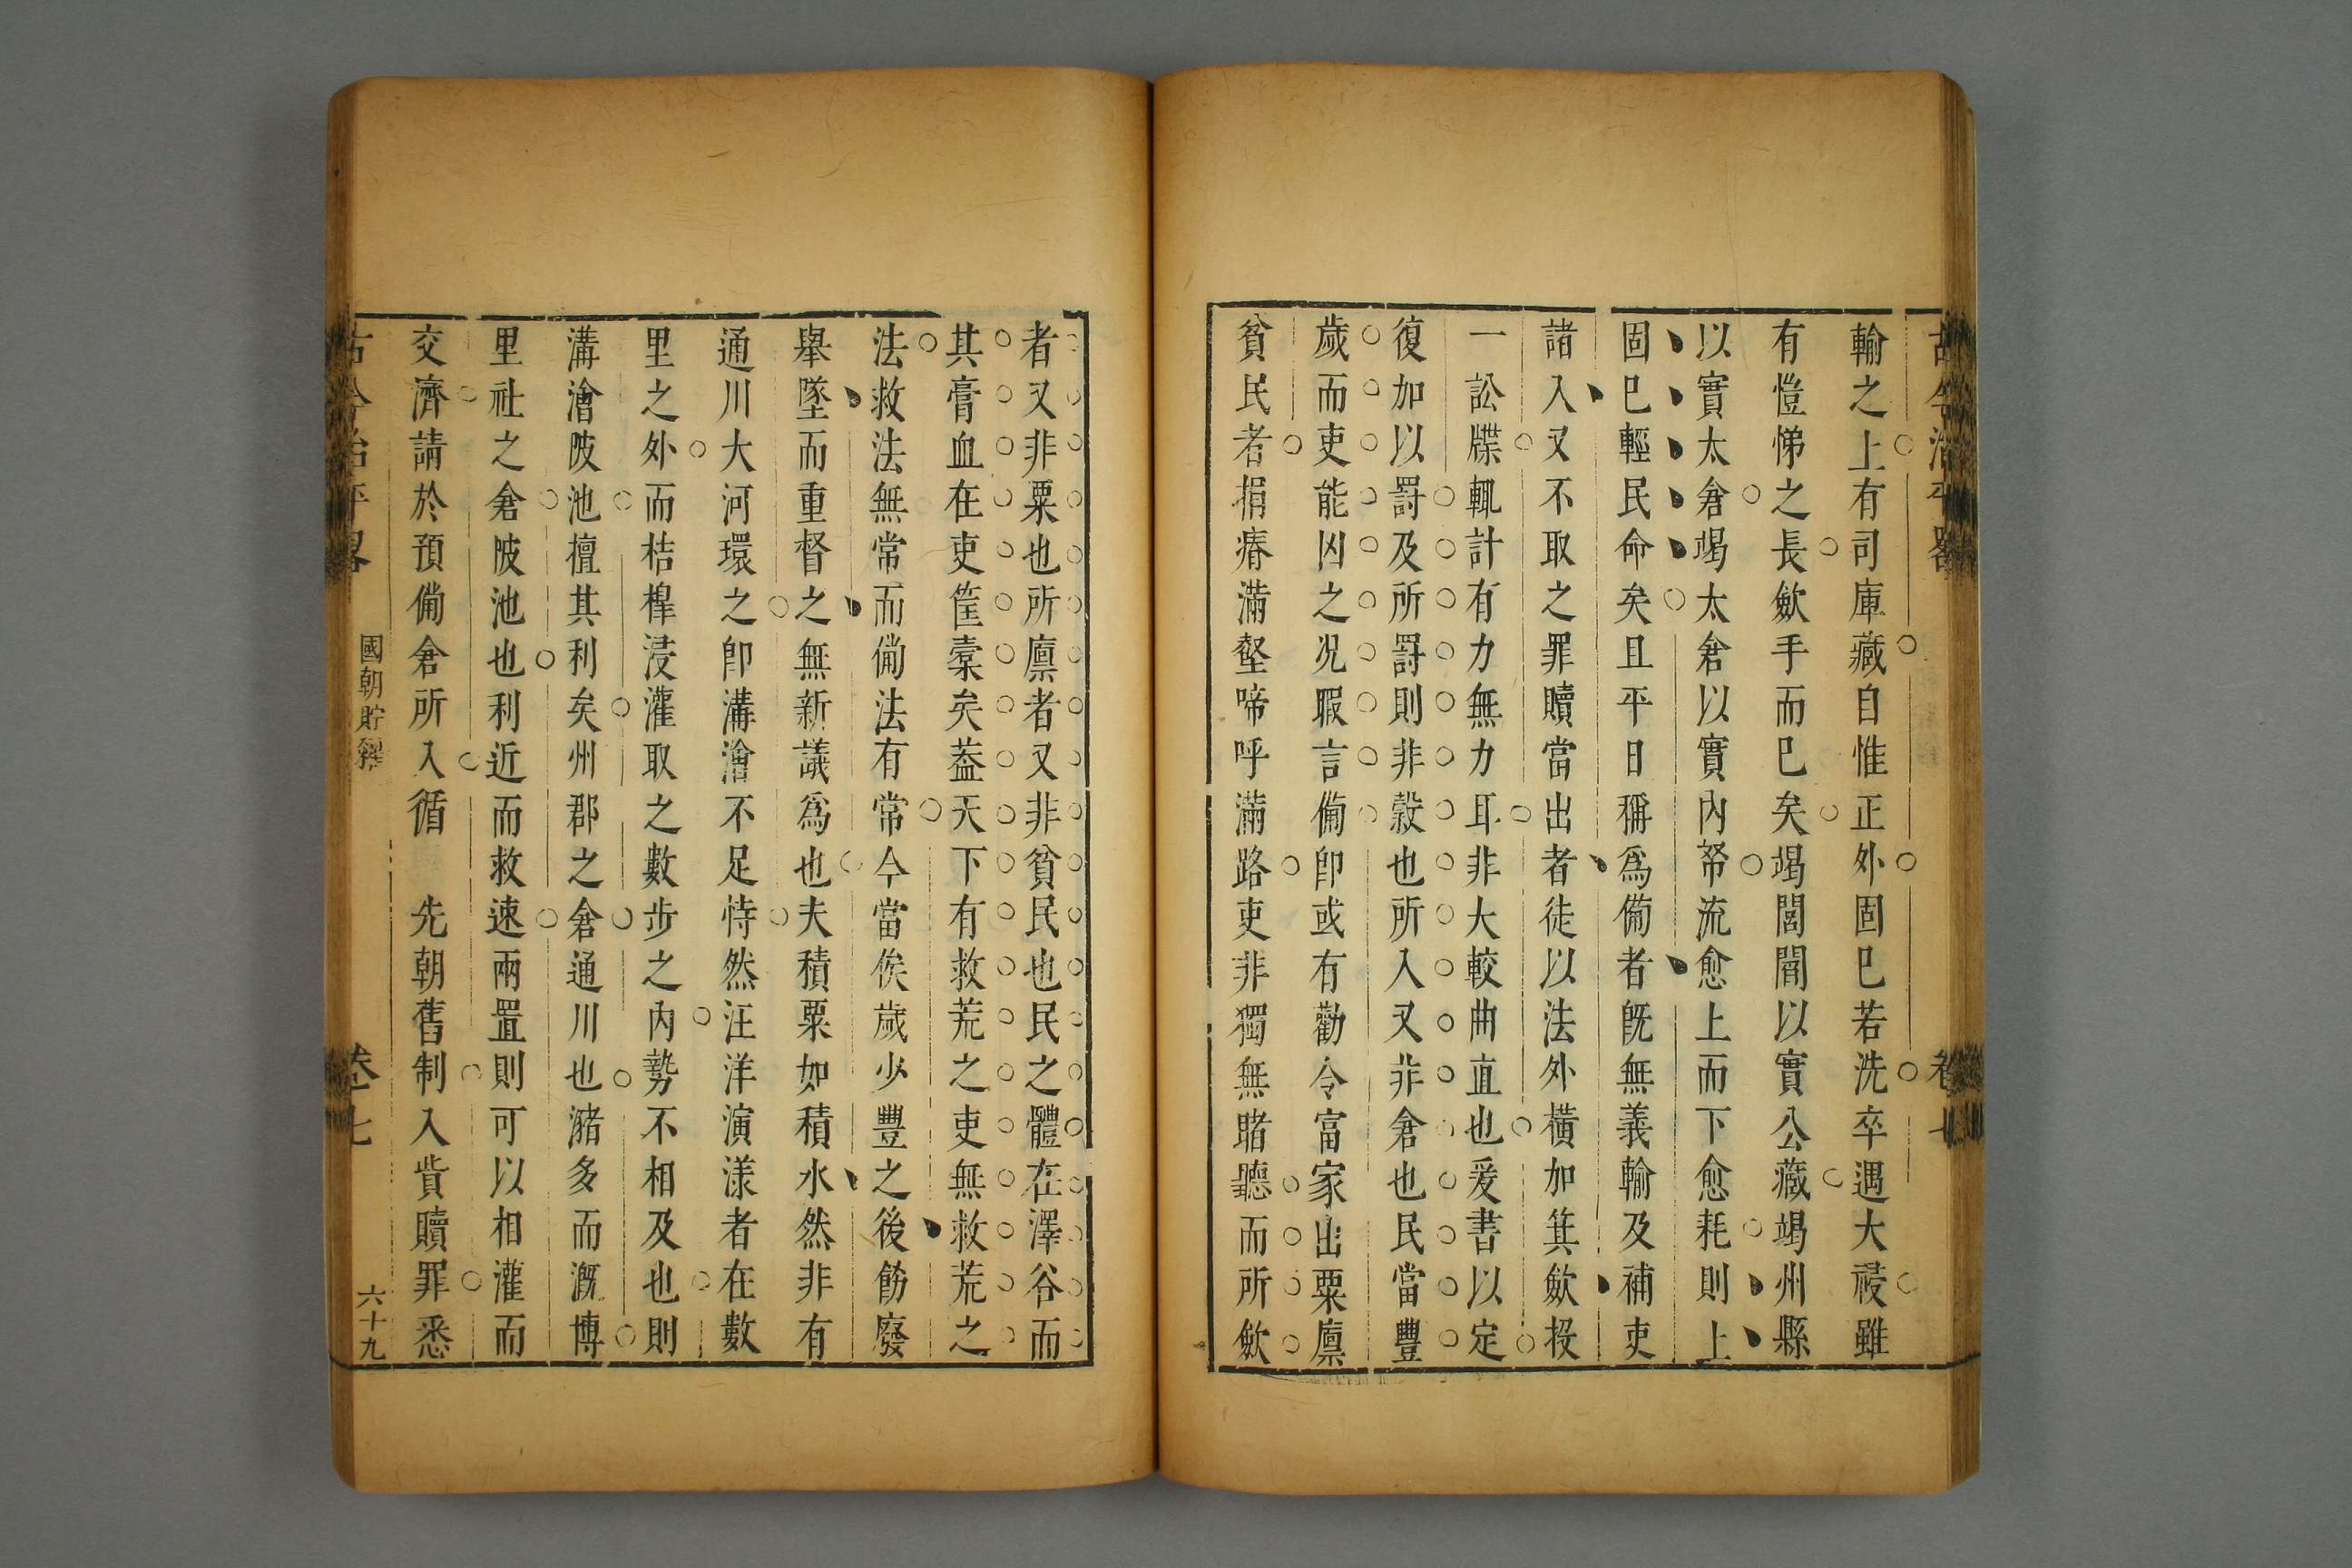 古今治平畧 卷七
輸之上有司庫藏自惟正外固巳若洗卒遇大祲雖
有愷悌之長歛手而巳矣竭閭閻以實公藏竭州縣
以實太倉竭太倉以實內帑流愈上而下愈耗則上
固巳輕民命矣且平日稱爲備者旣無義輸及補吏
諸入又不取之罪贖當出者徒以法外橫加箕歛投
一訟牒輒計有力無力耳非大較曲直也爰書以定
復加以罰及所罰則非穀也所入又非倉也民當豐
歲而吏能凶之况暇言備卽或有勸令富家出粟廪
貧民者捐瘠滿壑啼呼滿路吏非獨無賭聽而所歛
者又非粟也所廪者又非貧民也民之體在澤谷而
其膏血在吏筐槖矣葢天下有救荒之吏無救荒之
法救法無常而備法有常今當俟歲少豐之後飭廢
舉墜而重督之無新議爲也夫積粟如積水然非有
通川大河環之卽溝澮不足恃然汪洋演漾者在數
里之外而桔槹浸灌取之數步之內勢不相及也則
溝澮陂池擅其利矣州郡之倉通川也瀦多而漑博
里社之倉陂池也利近而救速兩置則可以相灌而
交濟請於預備倉所入循　先朝舊制入貲贖罪悉
古今治平畧 國朝貯糴 卷七 六十九